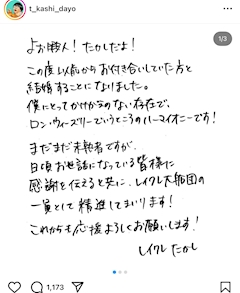 t_kashi_dayo
1/3
よお暇人!たかしだよ!
この度以前からお付き合いしていた方と
結婚することになりました。
僕にとってかけがえのない存在で、
ロン・ウィーズリーでいうところのハーマイオニーです!
まだまだ未熟者ですが、
日頃お世話になっている皆様に
感謝を伝えると共に、レイクレ大親団の
一員として精進してまいります!
これからも応援よろしくお願いします!
レイクレ たかし
1,173